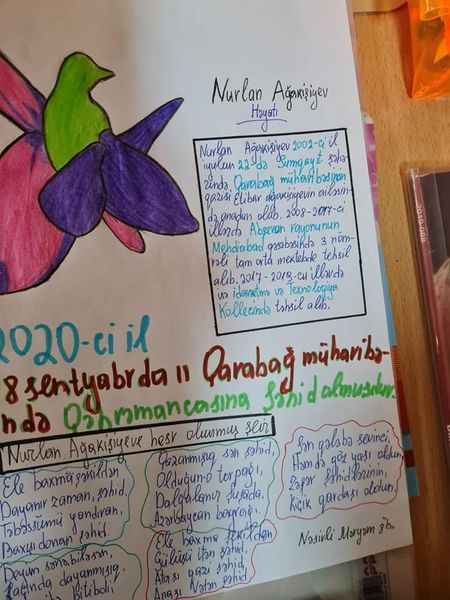 Nurlan Ağakişiyev
Həyatı
Nurlan Ağakişiyev 2002-ci il
iyulun 22-də Sumqayıt şəhə-
rində, Qarabağ müharibəsinin
qazisi Elibar Ağakişiyevin ailəsin-
də anadan olub. 2008-2017-ci
illərdə Abşeron rayonunun
Mehdiabad qəsəbəsində 3 nöm-
rəli tam orta məktəbdə təhsil
alıb. 2017-2019-cu illərdə
və Texnologiya
Kollecində təhsil alıb.
2020-ci il
8 sentyabrda II Qarabağ müharibə-
ndə Qəhrəmancasına Şəhid olmuşdur.
Nurlan Ağakişiyevə həsr olunmuş şeir
Elə baxma şəkildən
Dayanır zaman, şəhid.
Təbəssümü yandıran,
Baxışı donan şəhid.
Deyən sənə biləsən,
Qazanmışıq sən şəhid,
Olduğun-o torpağı,
Dalğalanır Şuşada,
Azərbaycan bayrağı.
Elə baxma şəkildən
Gülüşü itən şəhid,
Atası qazi şəhid,
Anası Vətən şəhid
Sən qələbə sevinci,
Həmdə göz yaşı oldun,
Zəfər şəhidlərinin,
Kiçik qardaşı oldun.
Nəsirli Məryəm